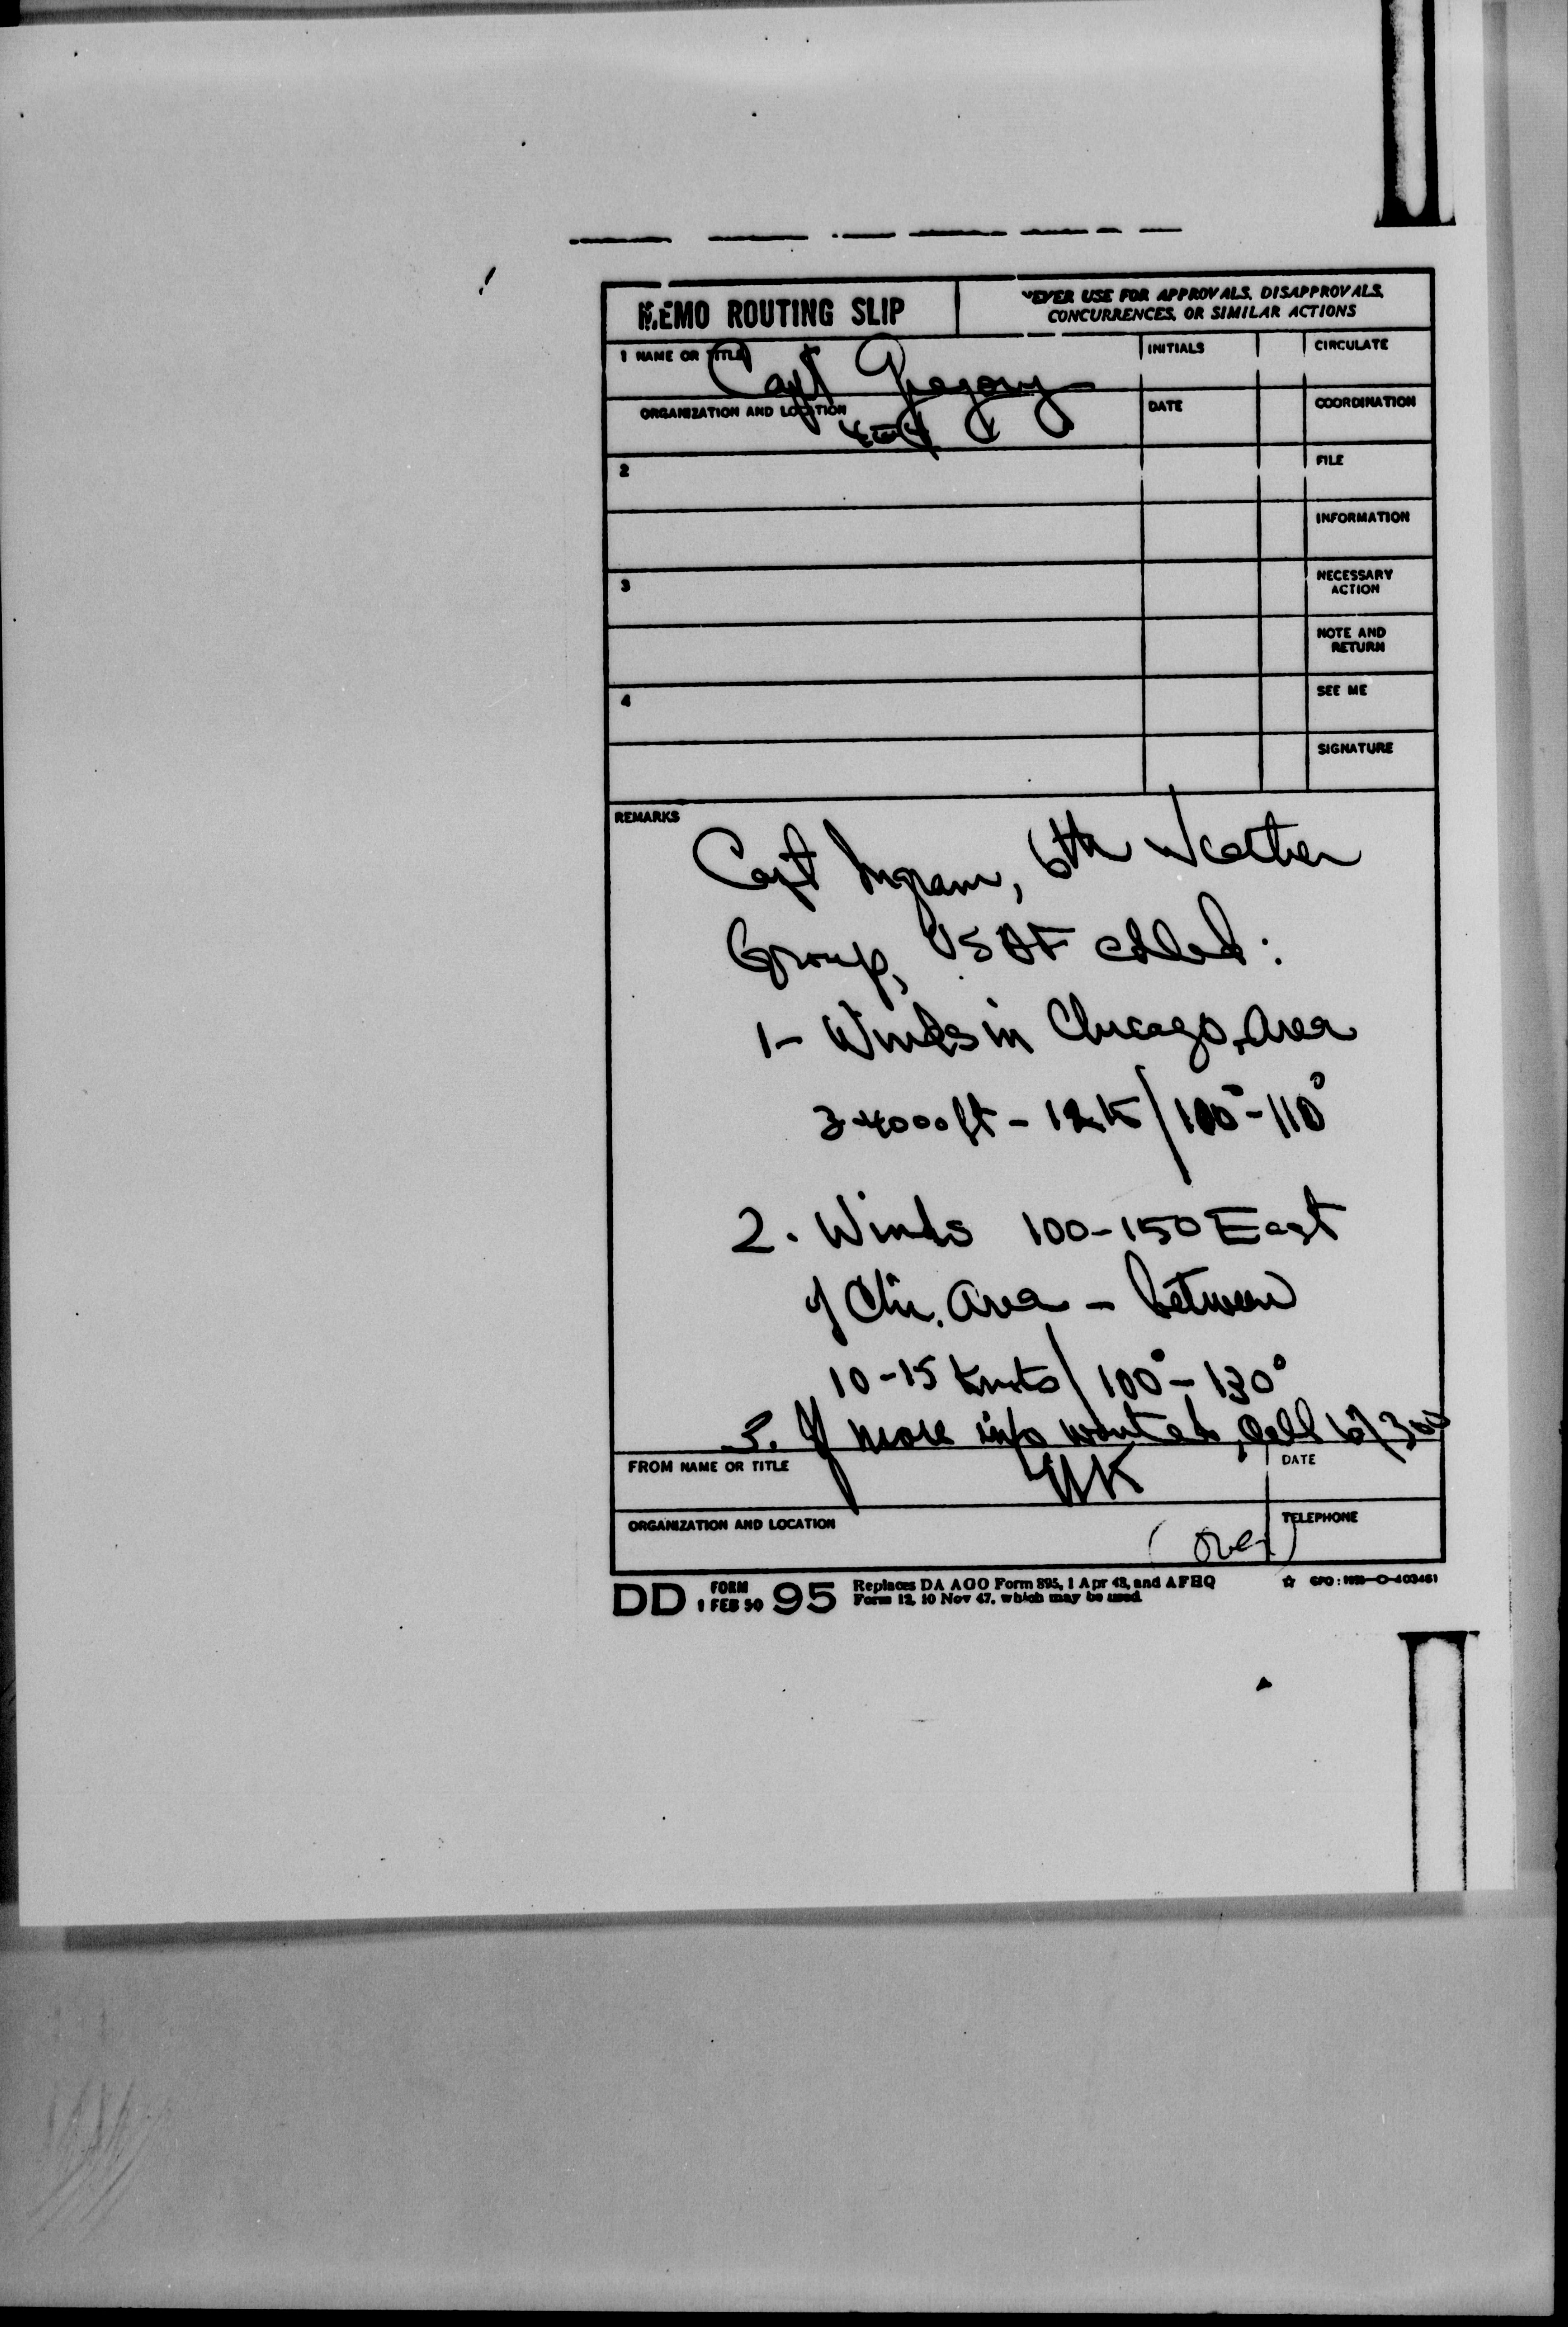 MEMO ROUTING SLIP
NEVER USE FOR APPROVALS, DISAPPROVALS,
CONCURRENCES, OR SIMILAR ACTIONS
1 NAME OR TITLE
Capt Gregory
INITIALS
CIRCULATE
ORGANIZATION AND LOCATION
DATE
COORDINATION
2
FILE
INFORMATION
3
NECESSARY
ACTION
NOTE AND
RETURN
4
SEE ME
SIGNATURE
REMARKS
Capt Ingram, 6th Weather
Group, USAF called:
1- Winds in Chicago, area
3-4000 ft - 12K/100°-110°
2. Winds 100-150 East
of Chi. area - between
10-15 Knots/100°-130°
3. If more info wanted, call
FROM NAME OR TITLE
DATE
ORGANIZATION AND LOCATION
TELEPHONE
(over)
DD FORM 1 FEB 50 95
Replaces DA AGO Form 895, 1 Apr 48, and AFHQ
Form 12, 10 Nov 47, which may be used.